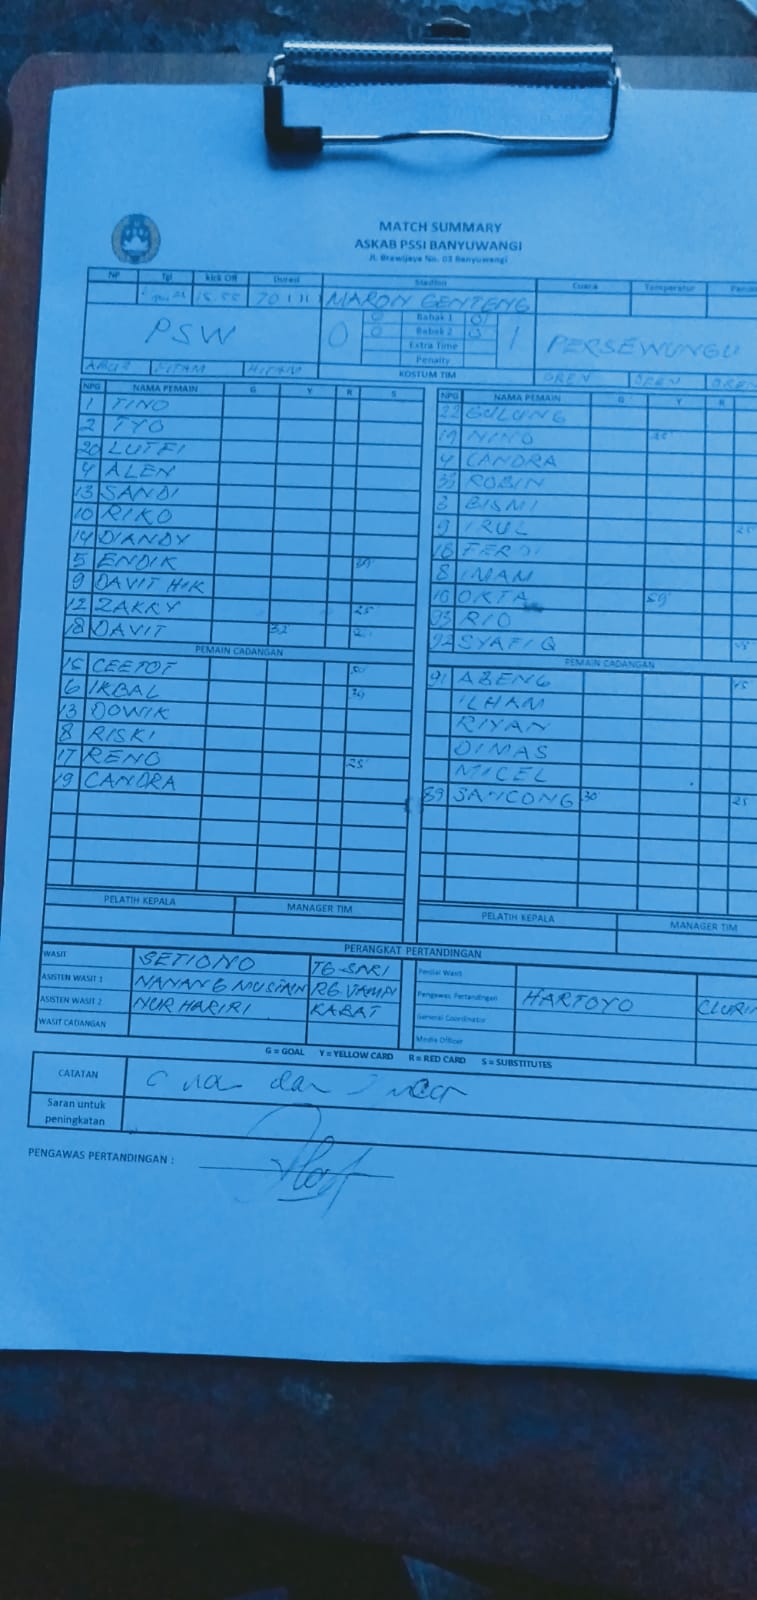 MATCH SUMMARY
ASKAB PSSI BANYUWANGI
Jl. Brawijaya No. 03 Banyuwangi
NP Tgl Kick Off Durasi Stadion Cuaca Temperatur
15.55 70 MARON GENTENG
PSW 0 Babak 1 1 PERSEWUNGU
Babak 2
Extra Time
Penalty
HITAM HITAM KOSTUM TIM OREN OREN OREN
NPG NAMA PEMAIN G Y R S NPG NAMA PEMAIN G Y R
1 TINO 22 GULUNG
2 TYO 19 NINO
20 LUTFI 4 CANDRA
4 ALEN 35 ROBIN
13 SANDI BISMI
10 RIKO 9 IRUL 25'
14 DIANDY FERDI
5 ENDIK 8 IMAM
9 DAVIT HIK OKTA 59'
12 ZAKKY 25' 93 RIO
18 DAVIT 32' 92 SYAFIQ
PEMAIN CADANGAN PEMAIN CADANGAN
15 CEETOT 91 ABENG
6 IKBAL ILHAM
13 DOWIK RIYAN
8 RISKI DIMAS
17 RENO 25' MICEL
19 CANDRA 89 SANCONG 30' 25
PELATIH KEPALA MANAGER TIM PELATIH KEPALA MANAGER TIM
PERANGKAT PERTANDINGAN
WASIT SETIONO TG SARI
ASISTEN WASIT 1 NANANG Pengawas Pertandingan HARTOYO
ASISTEN WASIT 2 NUR HARIRI KABAT General Coordinator
WASIT CADANGAN Media Officer
G = GOAL Y = YELLOW CARD R = RED CARD S = SUBSTITUTES
CATATAN dan
Saran untuk
peningkatan
PENGAWAS PERTANDINGAN :